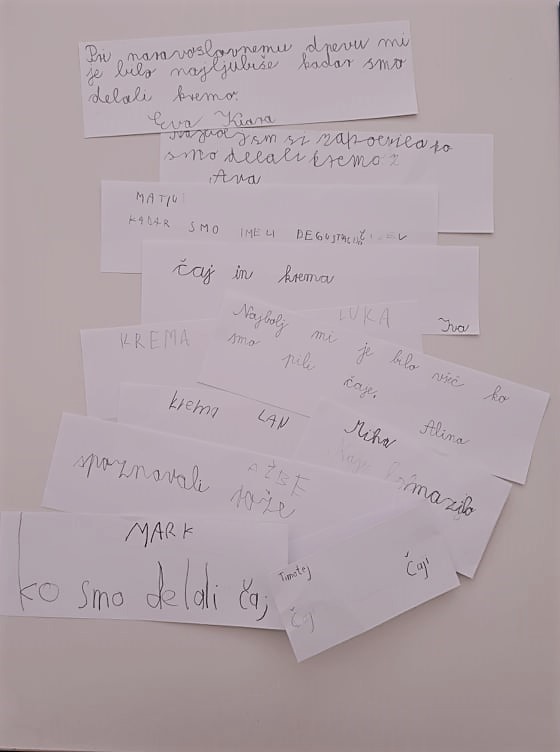 Pri naravoslovnemu dnevu mi
je bilo najljubše kadar smo
delali kremo.
Eva Kiara
sm si zapomnila ko
smo delali kremo
Ava
MATIJ
KADAR SMO IMELI
čaj in krema
Iva
LUKA
KREMA
Najbolj mi je bilo všeč ko
smo pili čaje.
Alina
krema LAN
Miha
mazilo
AŽBE
spoznavali rože
MARK
ko smo delali čaj
Timotej
Čaji
Čaj